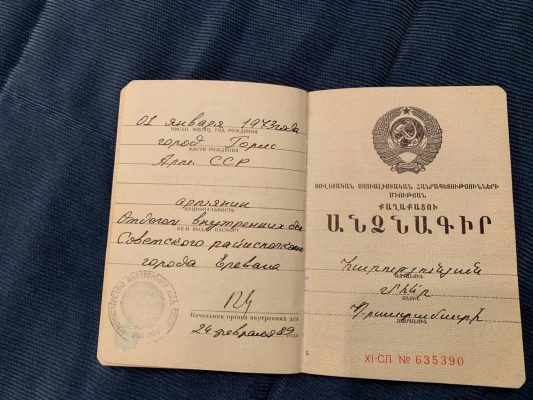 01 января 1973 года
ЧИСЛО, МЕСЯЦ, ГОД РОЖДЕНИЯ
город Горис
МЕСТО РОЖДЕНИЯ
Арм. ССР
армянин
НАЦИОНАЛЬНОСТЬ
Отделом внутренних дел
КЕМ ВЫДАН ПАСПОРТ
Советского райисполкома
города Еревана
Начальник органа внутренних дел
24 февраля 89 года
ՍՈՎԵՏԱԿԱՆ ՍՈՑԻԱԼԻՍՏԱԿԱՆ ՀԱՆՐԱՊԵՏՈՒԹՅՈՒՆՆԵՐԻ
ՄԻՈՒԹՅԱՆ
ՔԱՂԱՔԱՑՈՒ
ԱՆՁՆԱԳԻՐ
ԱԶԳԱՆՈՒՆԸ
ԱՆՈՒՆԸ
ՀԱՅՐԱՆՈՒՆԸ
XI-СЛ № 635390